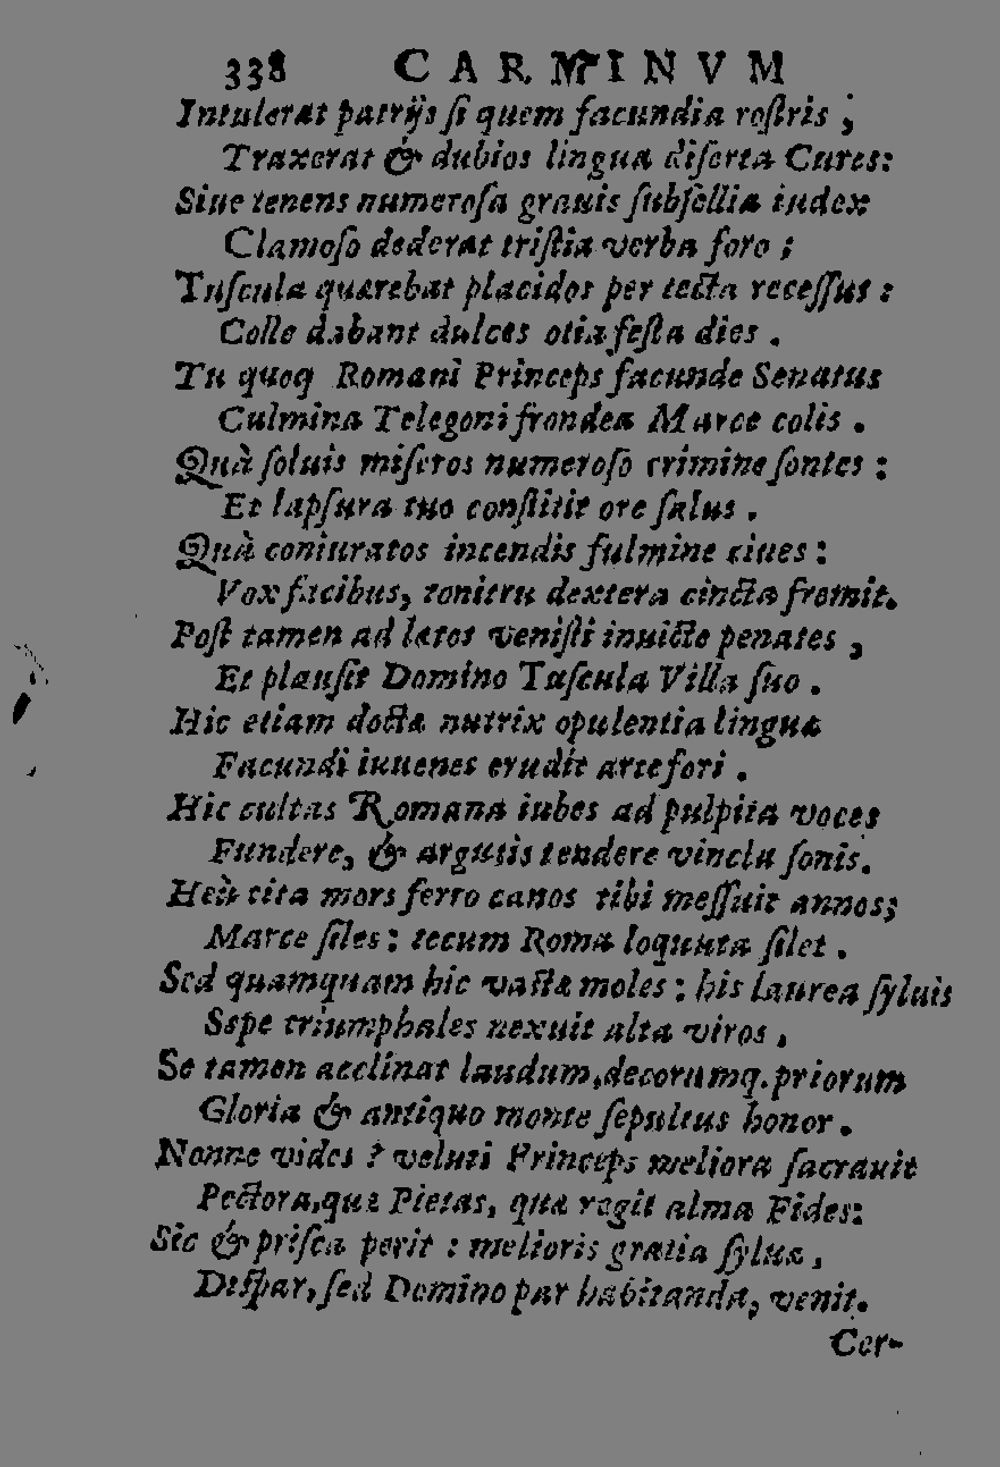 338 CARMINVM
Intulerat patrijs si quem facundia rostris;
Traxerat & dubios lingua diserta Cures:
Siue tenens numerosa grauis subsellia iudex
Clamoso dederat tristia verba foro;
Tuscula quærebat placidos per tecta recessus:
Colle dabant dulces otia festa dies.
Tu quoq Romani Princeps facunde Senatus
Culmina Telegoni frondea Marce colis.
Quà soluis miseros numeroso crimine sontes:
Et lapsura tuo constitit ore salus.
Quà coniuratos incendis fulmine ciues:
Vox facibus, tonitru dextera cincta fremit.
Post tamen ad lætos venisti inuicte penates,
Et plausit Domino Tuscula Villa suo.
Hic etiam doctæ nutrix opulentia linguæ
Facundi iuuenes erudit arte fori.
Hic cultas Romana iubes ad pulpita voces
Fundere, & argutis tendere vincla sonis.
Heù cita mors ferro canos tibi messuit annos;
Marce siles: tecum Roma loquuta silet.
Sed quamquam hic vastæ moles: his laurea syluis
Sæpe triumphales nexuit alta viros,
Se tamen acclinat laudum, decorumq. priorum
Gloria & antiquo monte sepultus honor.
Nonne vides? veluti Princeps meliora sacrauit
Pectora, quæ Pietas, quæ regit alma Fides:
Sic & prisca perit: melioris gratia syluæ,
Dispar, sed Domino par habitanda, venit.
Cer-